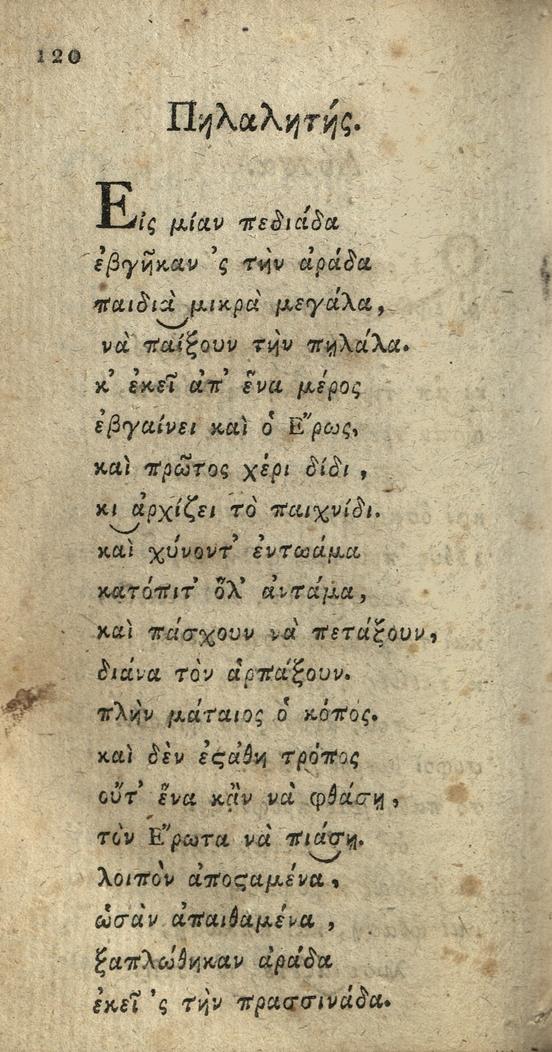 120
Πηλαλητής.
Εἰς μίαν πεδιάδα
ἐβγῆκαν 'ς τὴν ἀράδα
παιδιὰ μικρὰ μεγάλα,
νὰ παίξουν τὴν πηλάλα.
κ' ἐκεῖ ἀπ' ἕνα μέρος
ἐβγαίνει καὶ ὁ Ἔρως,
καὶ πρῶτος χέρι δίδι,
κι ἀρχίζει τὸ παιχνίδι.
καὶ χύνοντ' ἐντωάμα
κατόπιτ' ὅλ' ἀντάμα,
καὶ πάσχουν νὰ πετάξουν,
διάνα τὸν ἁρπάξουν.
πλὴν μάταιος ὁ κόπος.
καὶ δὲν ἐϛάθη τρόπος
οὔτ' ἕνα κἂν νὰ φθάσῃ,
τὸν Ἔρωτα νὰ πιάσῃ.
λοιπὸν ἀποϛαμένα,
ὡσὰν ἀπαιθαμένα,
ξαπλώθηκαν ἀράδα
ἐκεῖ 'ς τὴν πρασσινάδα.